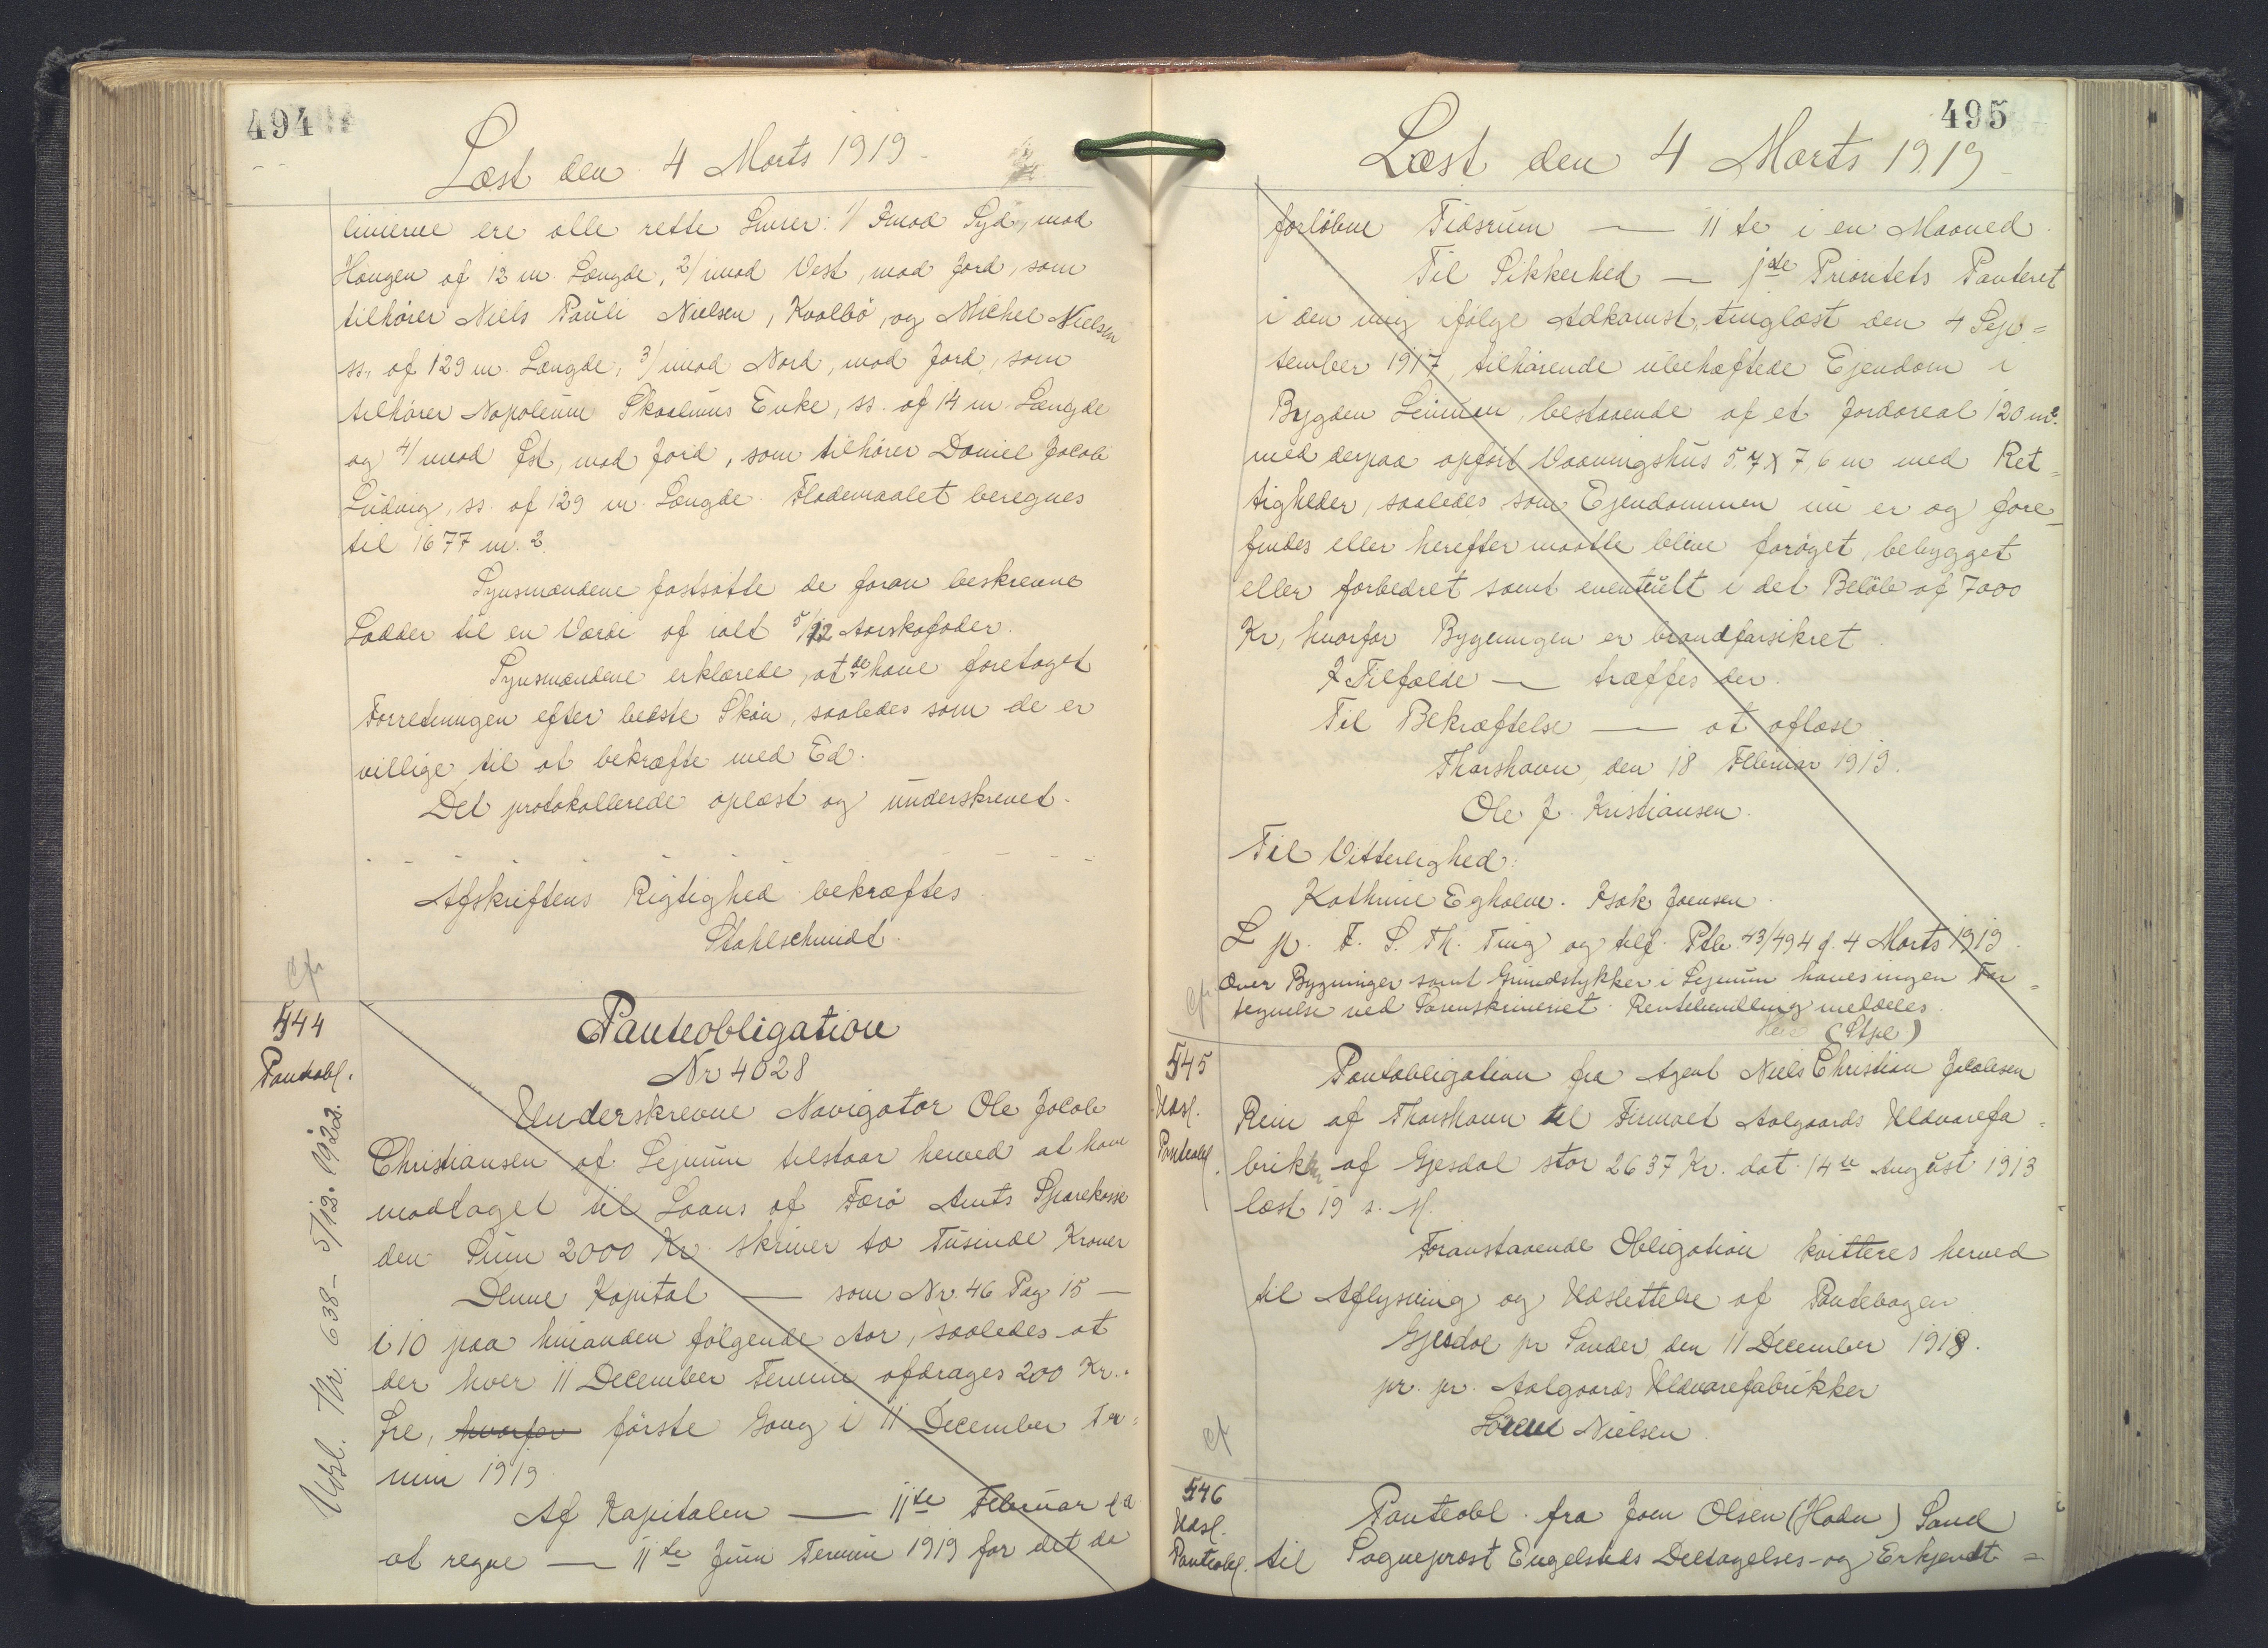 494
Læst den 4 Marts 1919.
linierne ere alle rette Linier: 1/ Imod Syd, mod
Haugen af 12 m. Længde, 2/ imod Vest, mod Jord, som
tilhører Niels Pauli Nielsen, Kvalbø, og Michel Nielsen
ss. af 129 m. Længde, 3/ imod Nord, mod Jord, som
tilhører Napoleune Skaalums Enke, ss. af 14 m. Længde
og 4/ imod Øst, mod Jord, som tilhører Daniel Jacob
Ludvig, ss. af 129 m. Længde. Flademaalet beregnes
til 1677 m. 2.
Synsmændene fastsatte de foran beskrevne
Lodder til en Værdi af ialt 5/12 Aarskofoder.
Synsmændene erklærede, at de have foretaget
Forretningen efter bedste Skøn, saaledes som de er
villige til at bekræfte med Ed.
Det protokollerede oplæst og underskrevet.
Afskriftens Rigtighed bekræftes.
Stahlschmidt.
cfr
544
Panteobl.
Udsl. Nr. 638 - 5/12. 1922.
Panteobligation
Nr 4028
Underskrevne Navigatør Ole Jacob
Christiansen af Lejnum tilstaar herved at have
modtaget til Laans af Færø Amts Sparekasse
den Sum 2000 Kr. skriver to Tusinde Kroner
Denne Kapital — som Nr. 46 Pag 15 —
i 10 paa hinanden følgende Aar, saaledes at
der hver 11 December Termin afdrages 200 Kr.
Øre, hvorfor første Gang i 11 December Ter=
min 1919.
Af Kapitalen — 11te Februar d. A.
at regne — 11te Juni Termin 1919 for det da
495
Læst den 4 Marts 1919
forløbne Tidsrum — 11 te i en Maaned.
Til Sikkerhed — 1ste Prioritets Panteret
i den mig ifølge Adkomst, tinglæst den 4 Sep=
tember 1917, tilhørende ubehæftede Ejendom i
Bygden Leinum, bestaaende af et Jordareal 120 m2.
med derpaa opført Vaaningshus 5,7 x 7,6 m med Ret=
tigheder, saaledes som Ejendommen nu er og fore=
findes eller herefter maatte blive forøget, bebygget
eller forbedret samt eventuelt i det Beløb af 7000
Kr, hvorfor Bygningen er brandforsikret.
I Tilfælde — træffes der.
Til Bekræftelse — at aflæse
Thorshavn, den 18 Februar 1919.
Ole J. Kristiansen.
Til Vitterlighed:
Kathrine Egholm. Isak Joensen.
L p. F. S. Th. Ting og tilf. Ptb. 43/494 d. 4 Marts 1919.
Over Bygninger samt Grundstykker i Lejnum haves ingen For=
tegnelse ved Sorenskriveriet. Rentebundling meddeles
(Stpl)
cfr
545
Udsl.
Panteobl.
Panteobligation fra Agent Niels Christian Jacobsen
Rein af Thorshavn til Firmaet Aalgaards Uldvarefa=
brikker af Gjesdal stor 2637 Kr. dat. 14de August 1913
læst 19 s. M.
Foranstaaende Obligation kvitteres herved
til Aflysning og Udslettelse af Pantebogen
Gjesdal pr Sandes, den 11 December 1918.
pr. pr. Aalgaards Uldvarefabrikker
Søren Nielsen
cfr
546
Udsl.
Panteobl.
Panteobl. fra Joen Olsen (Hadn) Sand
til Sognepræst Engelsteds Deeltagelses- og Erkjendt=